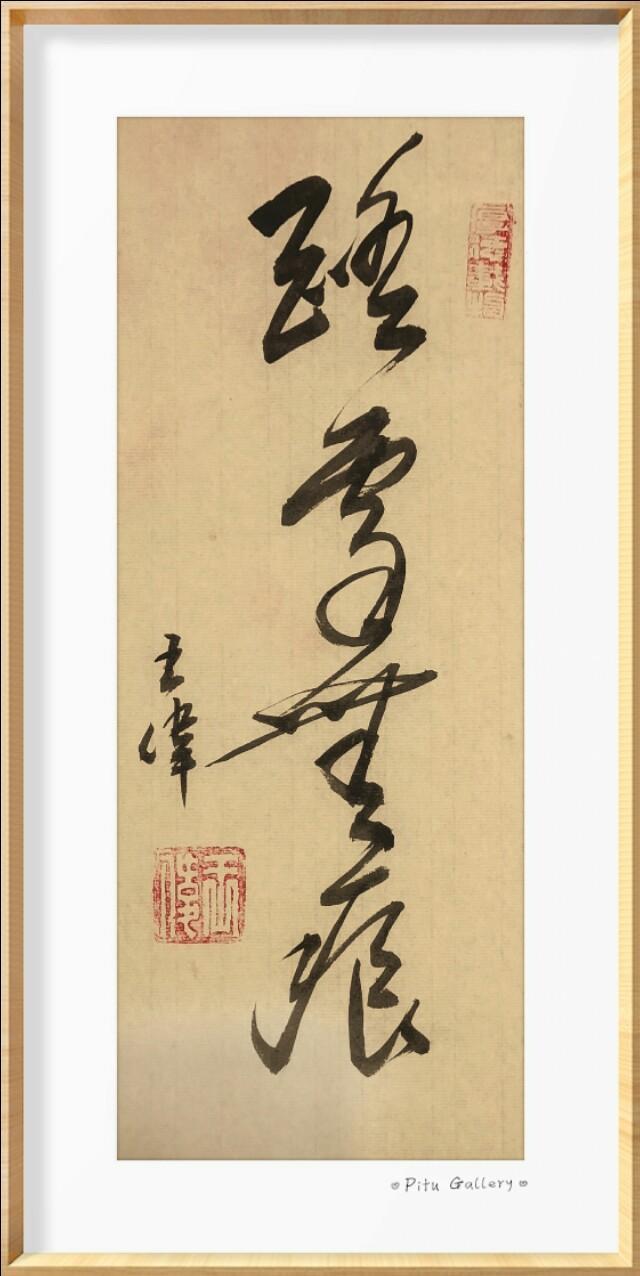 踏雪無痕
王偉
厚德載物
王偉
Pitu Gallery